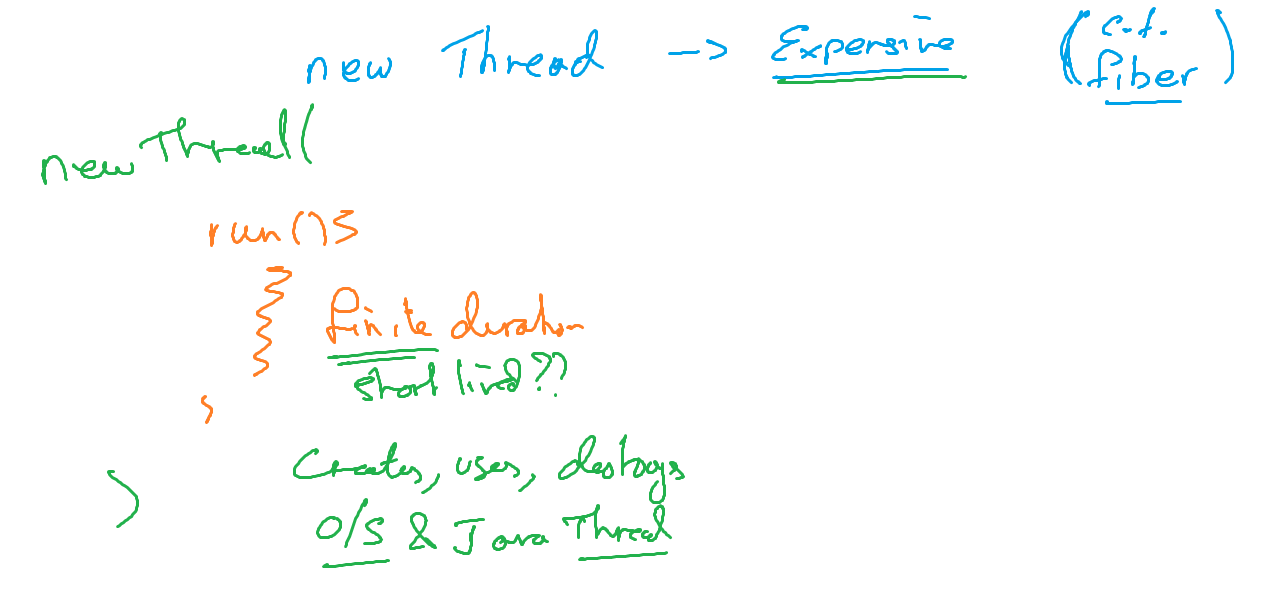 new Thread -> Expensive (c.f. fiber)
new Thread(
run(){
finite duration
short lived??
}
Creates, uses, destroys
)
O/S & Java Thread